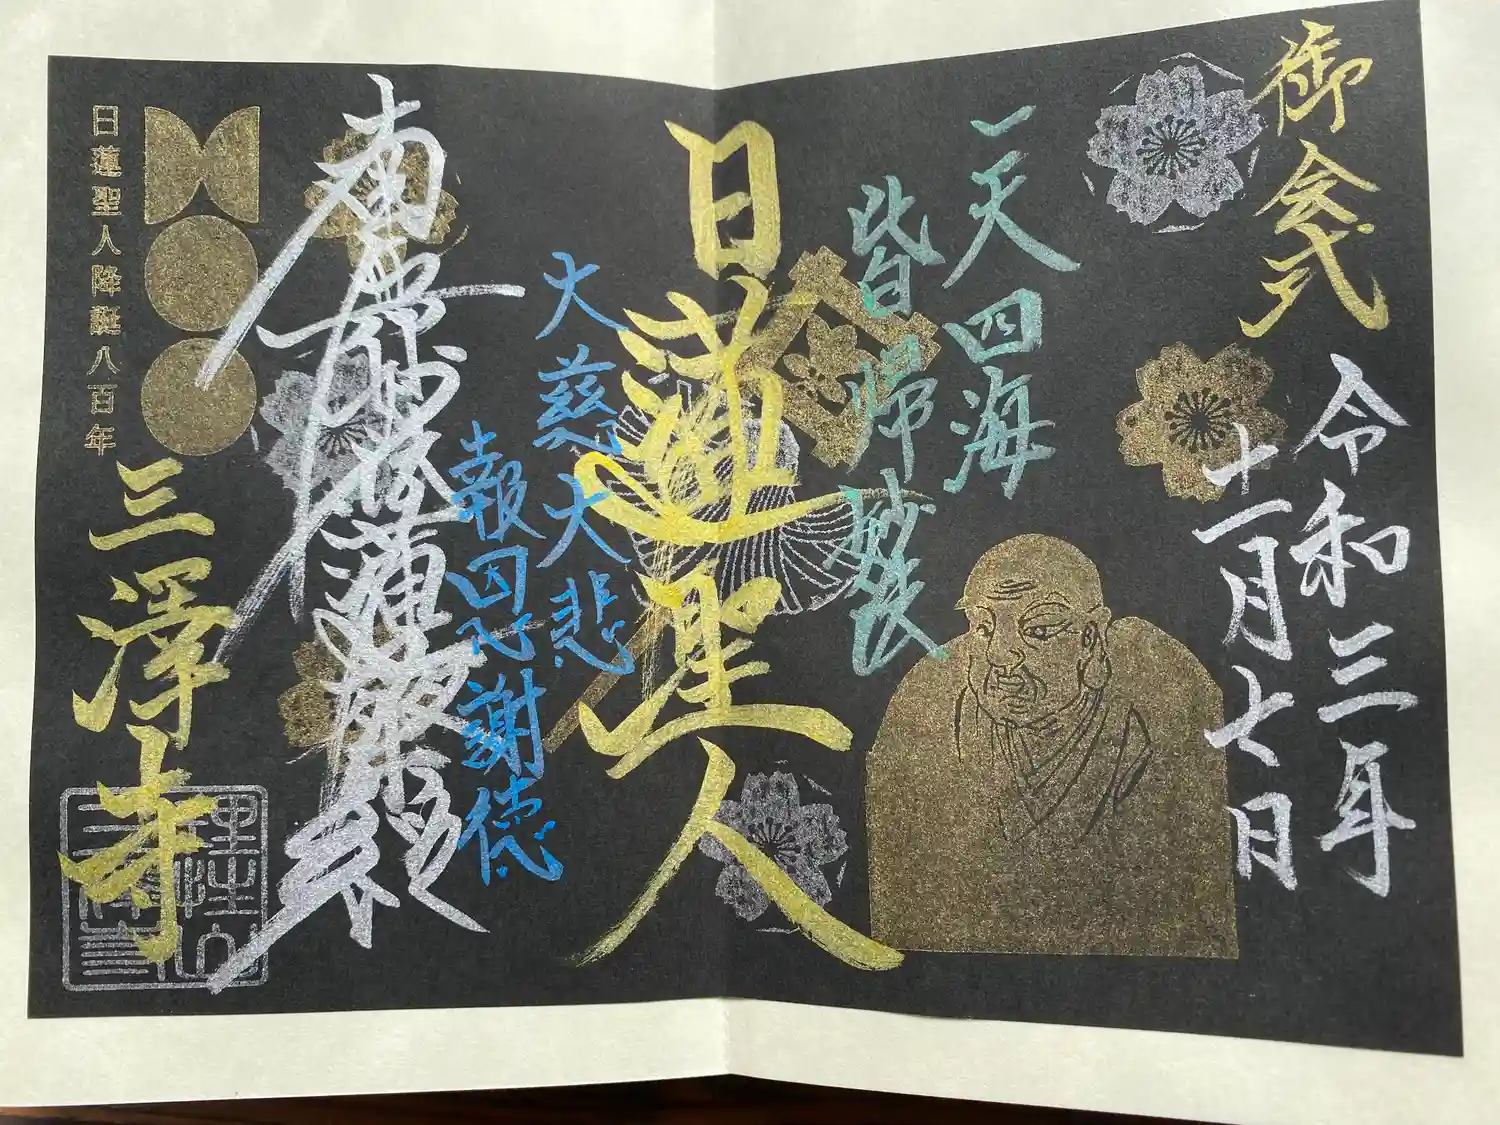 御会式
令和三年
十一月七日
一天四海
皆帰妙法
日蓮聖人
大慈大悲
報因心謝徳
南無妙法蓮華経
日蓮聖人降誕八百年
三澤寺